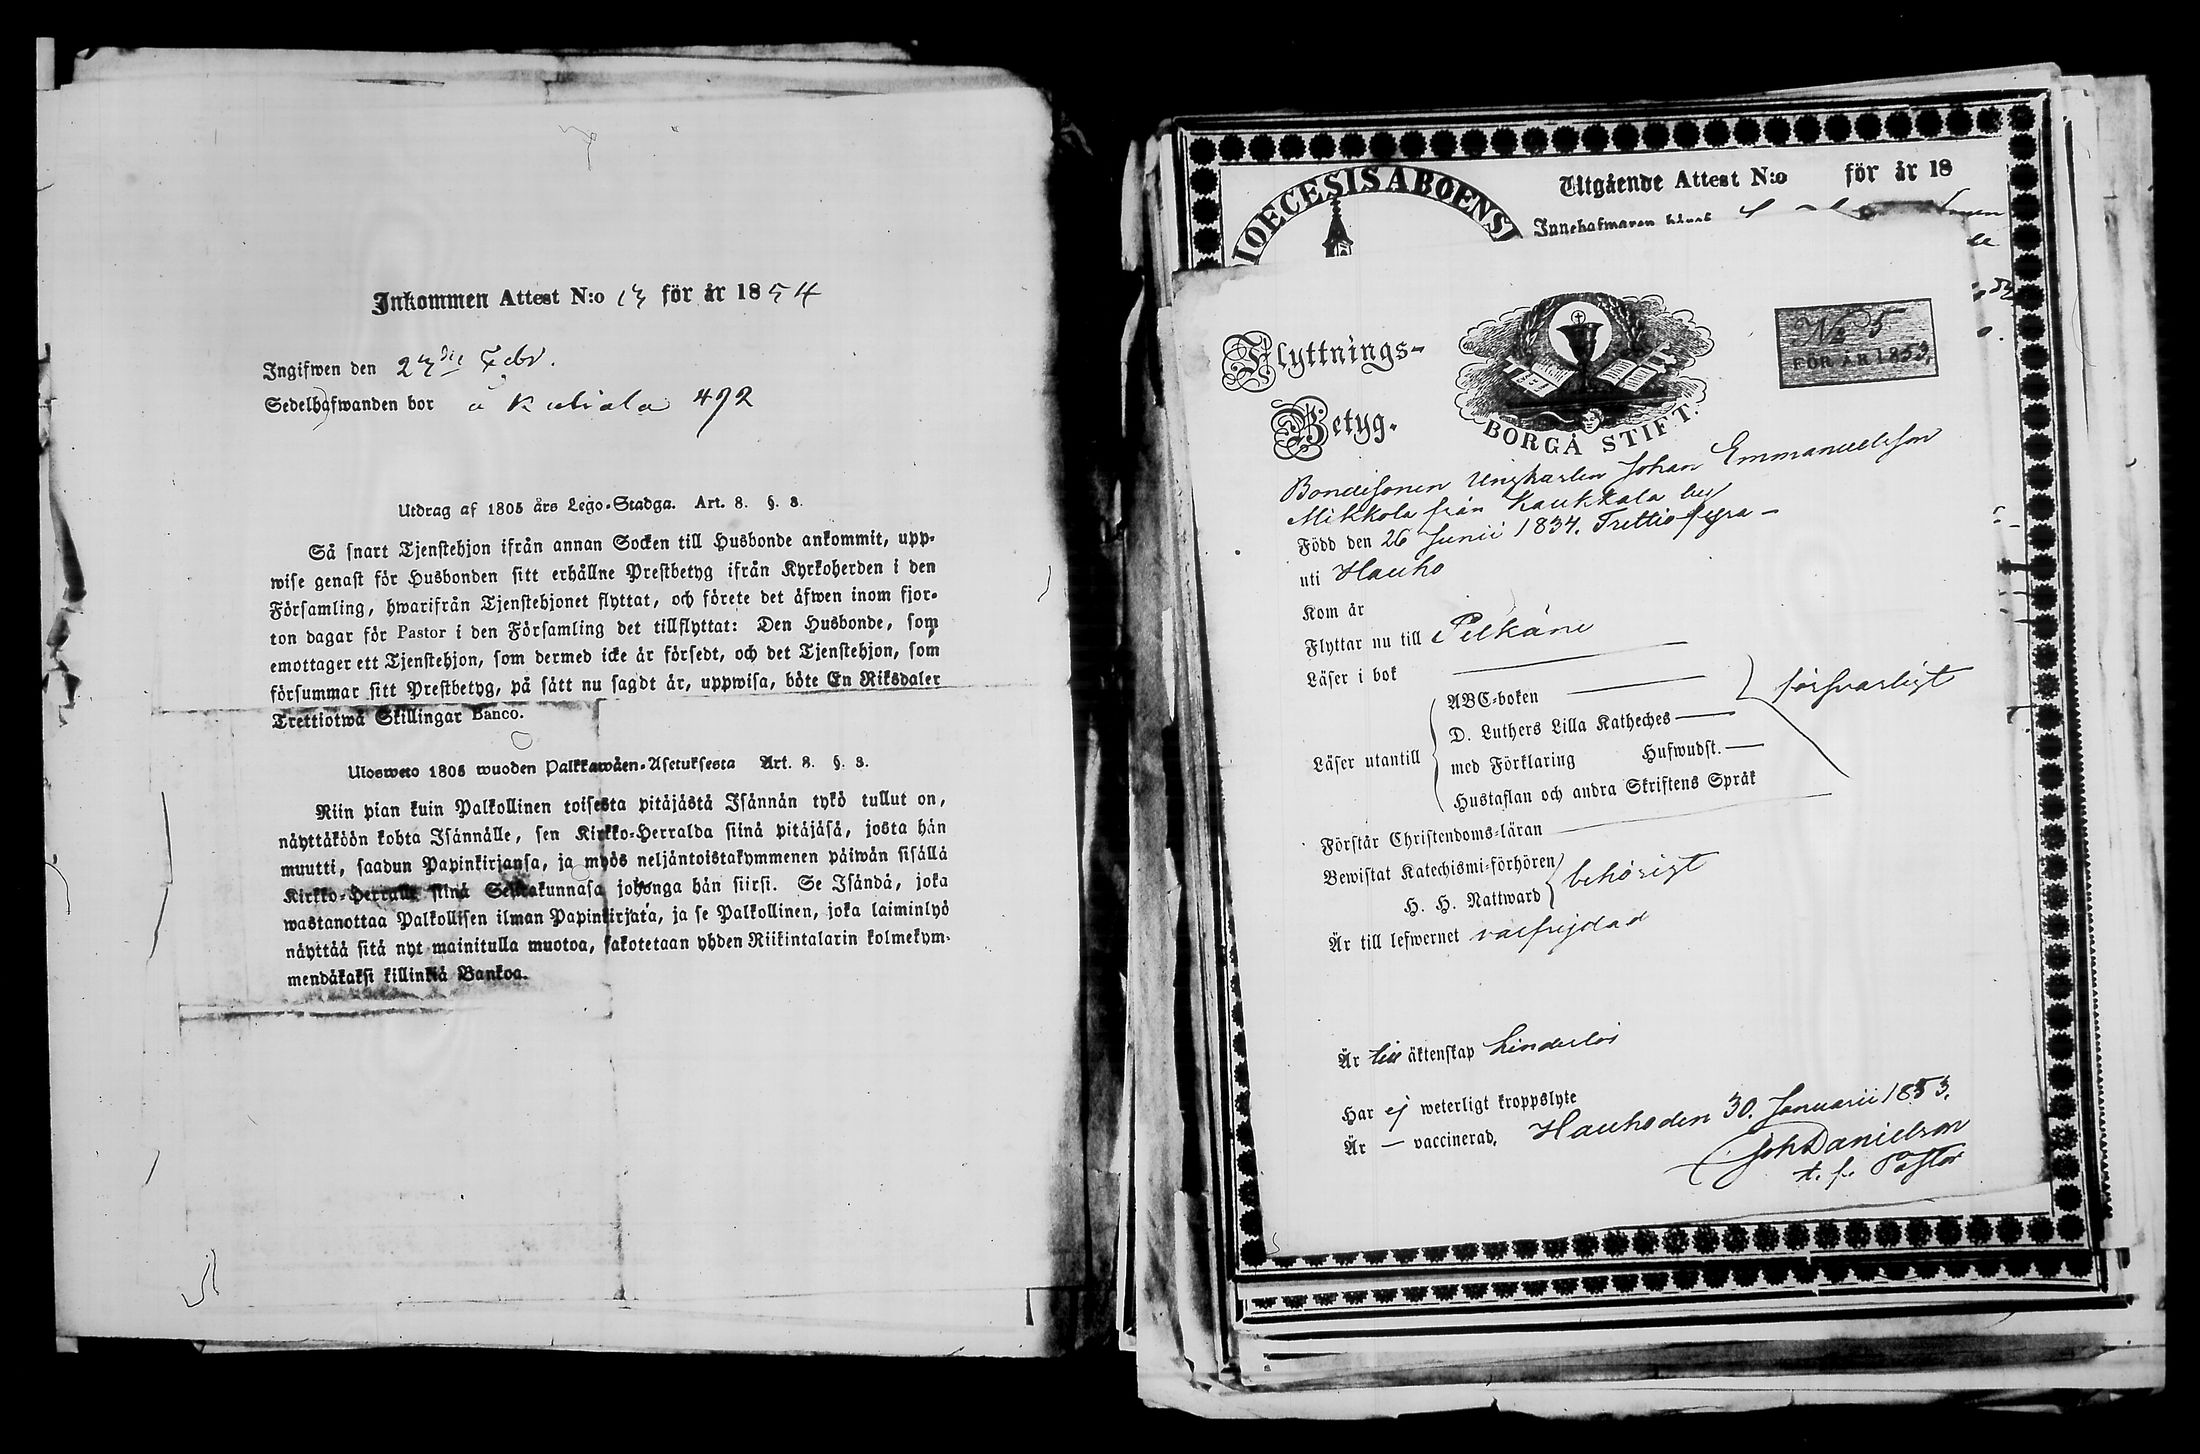 Inkommen Attest N:o 13 för år 1854
Ingifwen den 27die Febr.
Sedelhafwanden bor å Kukiala 492
Utdrag af 1805 års Lego-Stadga. Art. 8. §. 8.
Så snart Tjenstehjon ifrån annan Socken till Husbonde ankommit, upp-
wise genast för Husbonden sitt erhållne Prestbetyg ifrån Kyrkoherden i den
Församling, hwarifrån Tjenstehjonet flyttat, och förete det äfwen inom fjor-
ton dagar för Pastor i den Församling det tillflyttat: Den Husbonde, som
emottager ett Tjenstehjon, som dermed icke är försedt, och det Tjenstehjon, som
försummar sitt Prestbetyg, på sätt nu sagdt är, uppwisa, böte En Riksdaler
Trettiotwå Skillingar Banco.
Ulosweto 1805 wuoden Palkkawäen-Asetuksesta Art. 8. §. 8.
Niin pian kuin Palkollinen toisesta pitäjästä Isännän tykö tullut on,
näyttäköön kohta Isännälle, sen Kirkko-Herralda siinä pitäjäsä, josta hän
muutti, saadun Papinkirjansa, ja myös neljäntoistakymmenen päiwän sisällä
Kirkko-Herralle siinä Seurakunnasa johonga hän siirsi. Se Isändä, joka
wastanottaa Palkollisen ilman Papinkirjata, ja se Palkollinen, joka laiminlyö
näyttää sitä nyt mainitulla muotoa, sakotetaan yhden Riikintalarin kolmekym-
mendäkaksi killinkiä Bankoa.
Utgående Attest N:o för år 18
DIOECESIS ABOENSI
Innehafwaren
Flyttnings-
Betyg.
BORGÅ STIFT.
No 5
FÖR ÅR 1853,
Bondesonen Ungkarlen Johan Emmanuelsson
Mikkola från Kaukkala by
Född den 26 Junii 1834. Trettiofyra —
uti Hauho
Kom år
Flyttar nu till Pelkäne
Läser i bok
Läser utantill
ABC-boken
D. Luthers Lilla Katheches
med Förklaring Hufwudst.
Hustaflan och andra Skriftens Språk
försvarligt
Förstår Christendoms-läran
Bewistat Katechismi-förhören
H. H. Nattward
behörigt
Är till lefwernet välfrejdad
Är till äktenskap hinderlös
Har ej weterligt kroppslyte
Är — vaccinerad, Hauho den 30. Januarii 1853.
Joh Danielson
t. f. Pastor